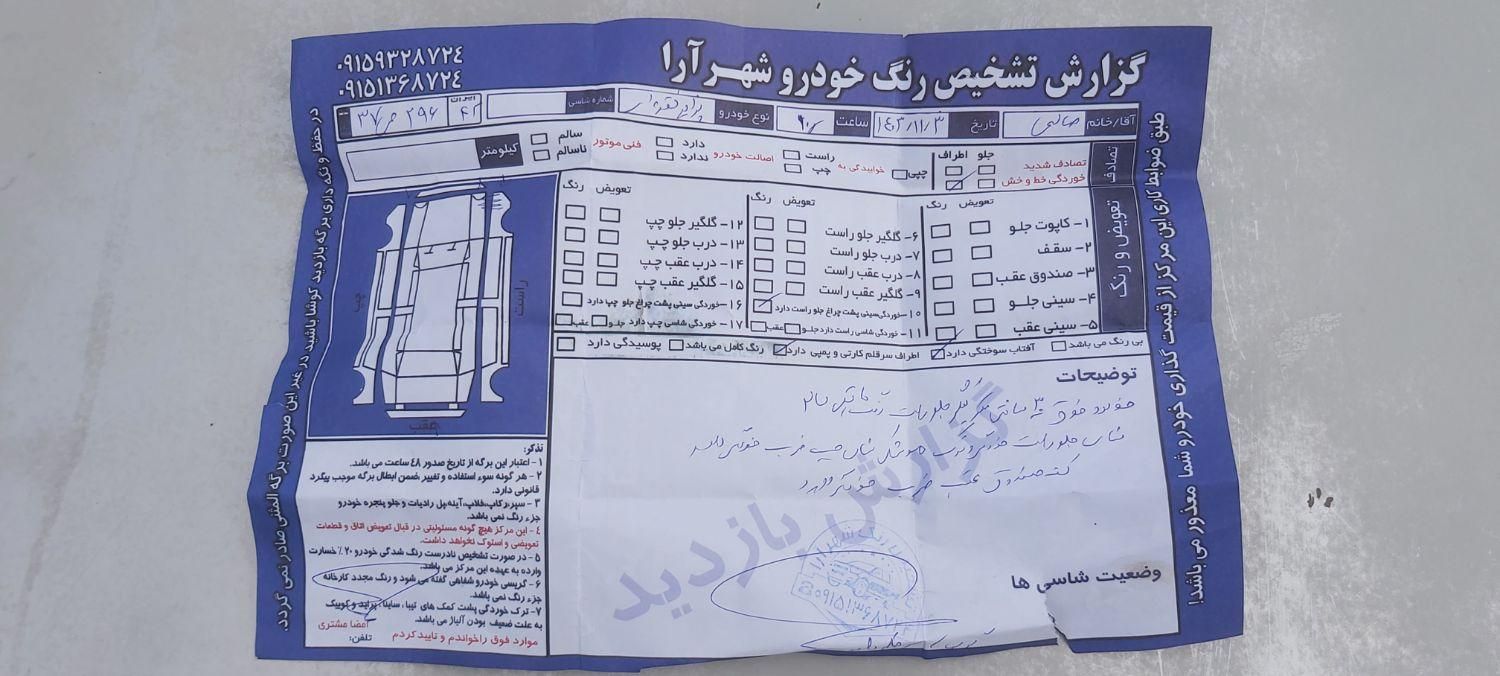 گزارش تشخیص رنگ خودرو شهر آرا
۰۹۱۵۹۳۲۸۷۲٤
۰۹۱۵۱۳۶۸۷۲٤
آقا/خانم صالحی تاریخ ۱۴۰۳/۱۱/۳ ساعت نوع خودرو پراید نقره ای شماره شاسی ایران ۴۲ ۲۹۶ ۳۷
تصادف
جلو اطراف
تصادف شدید
خوردگی خط و خش
چپی
خوابیدگی به راست چپ
اصالت خودرو دارد ندارد
فنی موتور سالم ناسالم
کیلومتر
تعویض و رنگ
تعویض رنگ
۱- کاپوت جلو
۲- سقف
۳- صندوق عقب
۴- سینی جلو
۵- سینی عقب
تعویض رنگ
۶- گلگیر جلو راست
۷- درب جلو راست
۸- درب عقب راست
۹- گلگیر عقب راست
۱۰- خوردگی سینی پشت چراغ جلو راست دارد
۱۱- خوردگی شاسی راست دارد جلو عقب
تعویض رنگ
۱۲- گلگیر جلو چپ
۱۳- درب جلو چپ
۱۴- درب عقب چپ
۱۵- گلگیر عقب چپ
۱۶- خوردگی سینی پشت چراغ جلو چپ دارد
۱۷- خوردگی شاسی چپ دارد جلو عقب
بی رنگ می باشد آفتاب سوختگی دارد اطراف سرقلم کارتی و پمپی دارد رنگ کامل می باشد پوسیدگی دارد
راست
چپ
عقب
توضیحات
خودرو فوق ۳ سانتی گلگیر جلو راست
شاسی جلو راست
گزارش بازدید
وضعیت شاسی ها
۰۹۱۵۱۳۶۸۷۲٤
تذکر:
۱- اعتبار این برگه از تاریخ صدور ٤٨ ساعت می باشد.
۲- هر گونه سوء استفاده و تغییر، ضمن ابطال برگه موجب پیگرد
قانونی دارد.
۳- سپر، رکاپ، فلاپ، آینه بل رادیات و جلو پنجره خودرو
جزء رنگ نمی باشد.
٤- این مرکز هیچ گونه مسئولیتی در قبال تعویض اتاق و قطعات
تعویضی و استوک نخواهد داشت.
۵- در صورت تشخیص نادرست رنگ شدگی خودرو ۲۰٪ خسارت
وارده به عهده این مرکز می باشد.
۶- گریسی خودرو شفاهی گفته می شود و رنگ مجدد کارخانه
جزء رنگ نمی باشد.
۷- ترک خوردگی پشت کمک های تیبا، ساینا، پراید و کوییک
به علت ضعیف بودن آلیاژ می باشد.
امضا مشتری
موارد فوق را خواندم و تایید کردم
تلفن:
طبق ضوابط کاری این مرکز از قیمت گذاری خودرو شما معذور می باشد!
در حفظ و نگه داری برگه بازدید کوشا باشید در غیر این صورت برگه المثنی صادر نمی گردد.